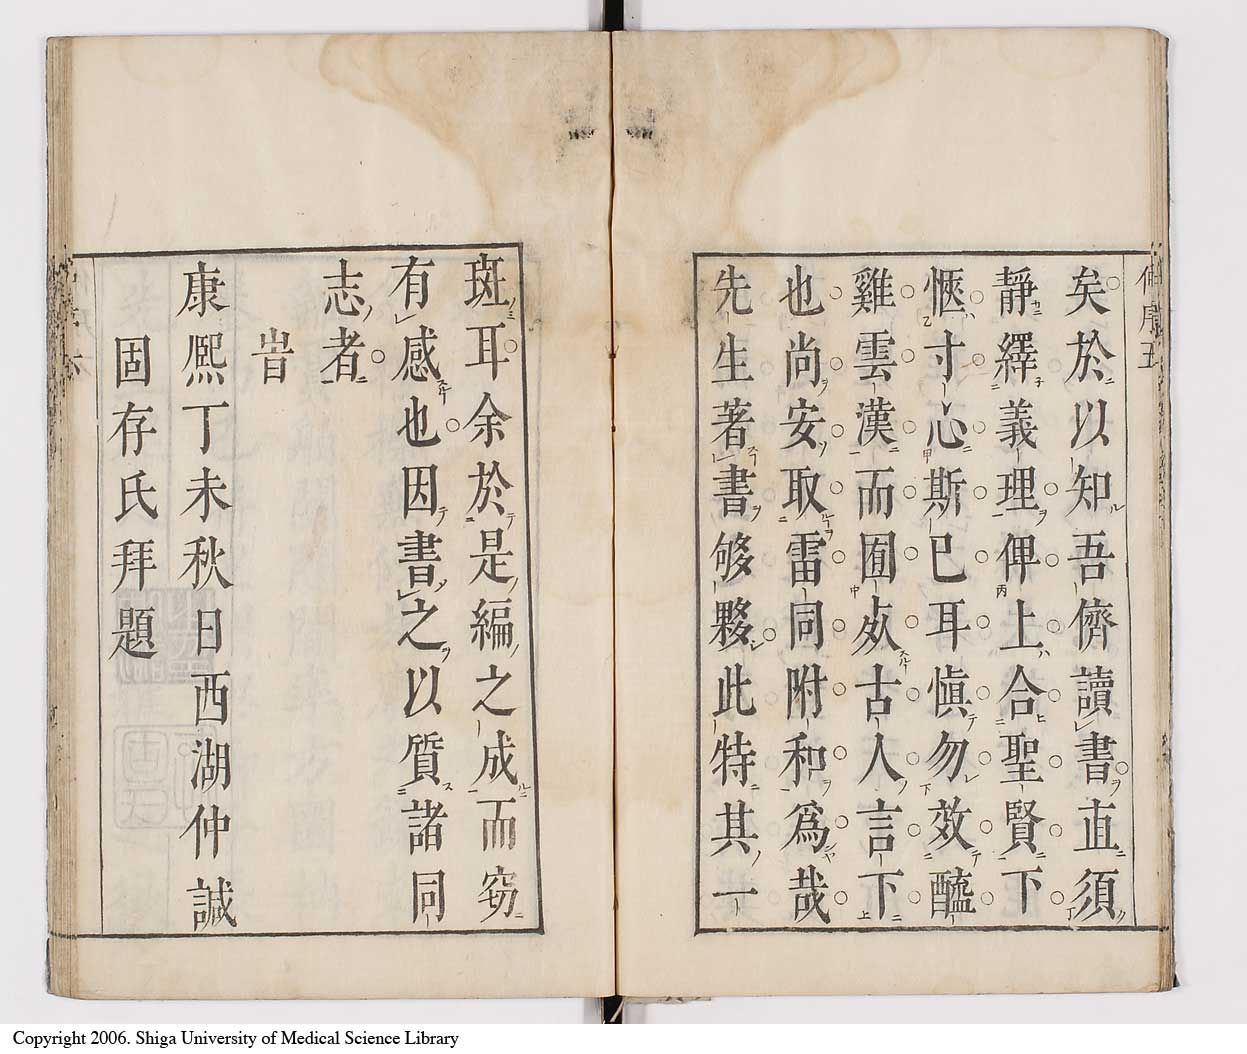 矣於以知吾儕讀書直須
靜繹義理俾上合聖賢下
愜寸心斯已耳愼勿效醯
雞雲漢而囿於古人言下
也尚安取雷同附和爲哉
先生著書够夥此特其一
斑耳余於是編之成而窃
有感也因書之以質諸同
志者
旹
康熙丁未秋日西湖仲誠
固存氏拜題
Copyright 2006. Shiga University of Medical Science Library